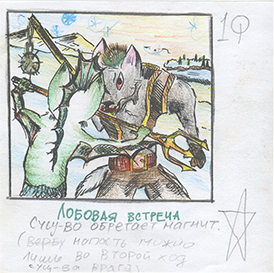 1Q
ЛОБОВАЯ ВСТРЕЧА
СУЩ-ВО ОБРЕТАЕТ МАГНИТ.
(ВЕРБУ НАГЛОСТЬ МОЖНО
ЛИШЬ ВО ВТОРОЙ ХОД
СУЩ-ВА ВРАГА)